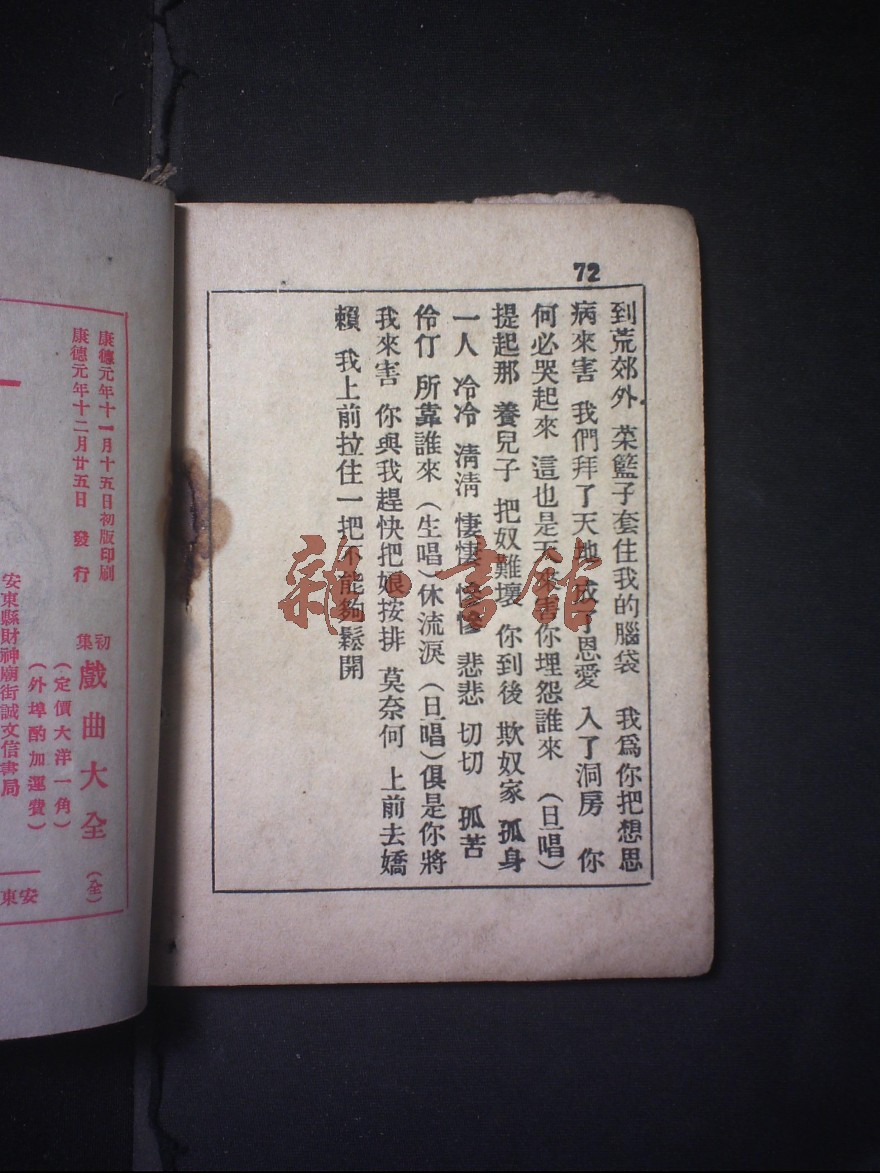 72
到荒郊外 菜籃子套住我的腦袋 我爲你把想思
病來害 我們拜了天地 成了恩愛 入了洞房 你
何必哭起來 這也是天來害你埋怨誰來 (旦唱)
提起那 養兒子 把奴難壞 你到後 欺奴家 孤身
一人 冷冷 淸淸 悽悽 慘慘 悲悲 切切 孤苦
伶仃 所靠誰來 (生唱)休流淚 (旦唱)俱是你將
我來害 你與我趕快把娘按排 莫奈何 上前去嬌
賴 我上前拉住一把不能夠鬆開
雜·書館
康德元年十一月十五日初版印刷
康德元年十二月廿五日 發行
初集 戲曲大全 (全)
(定價大洋一角)
(外埠酌加運費)
安東縣財神廟街誠文信書局
安東